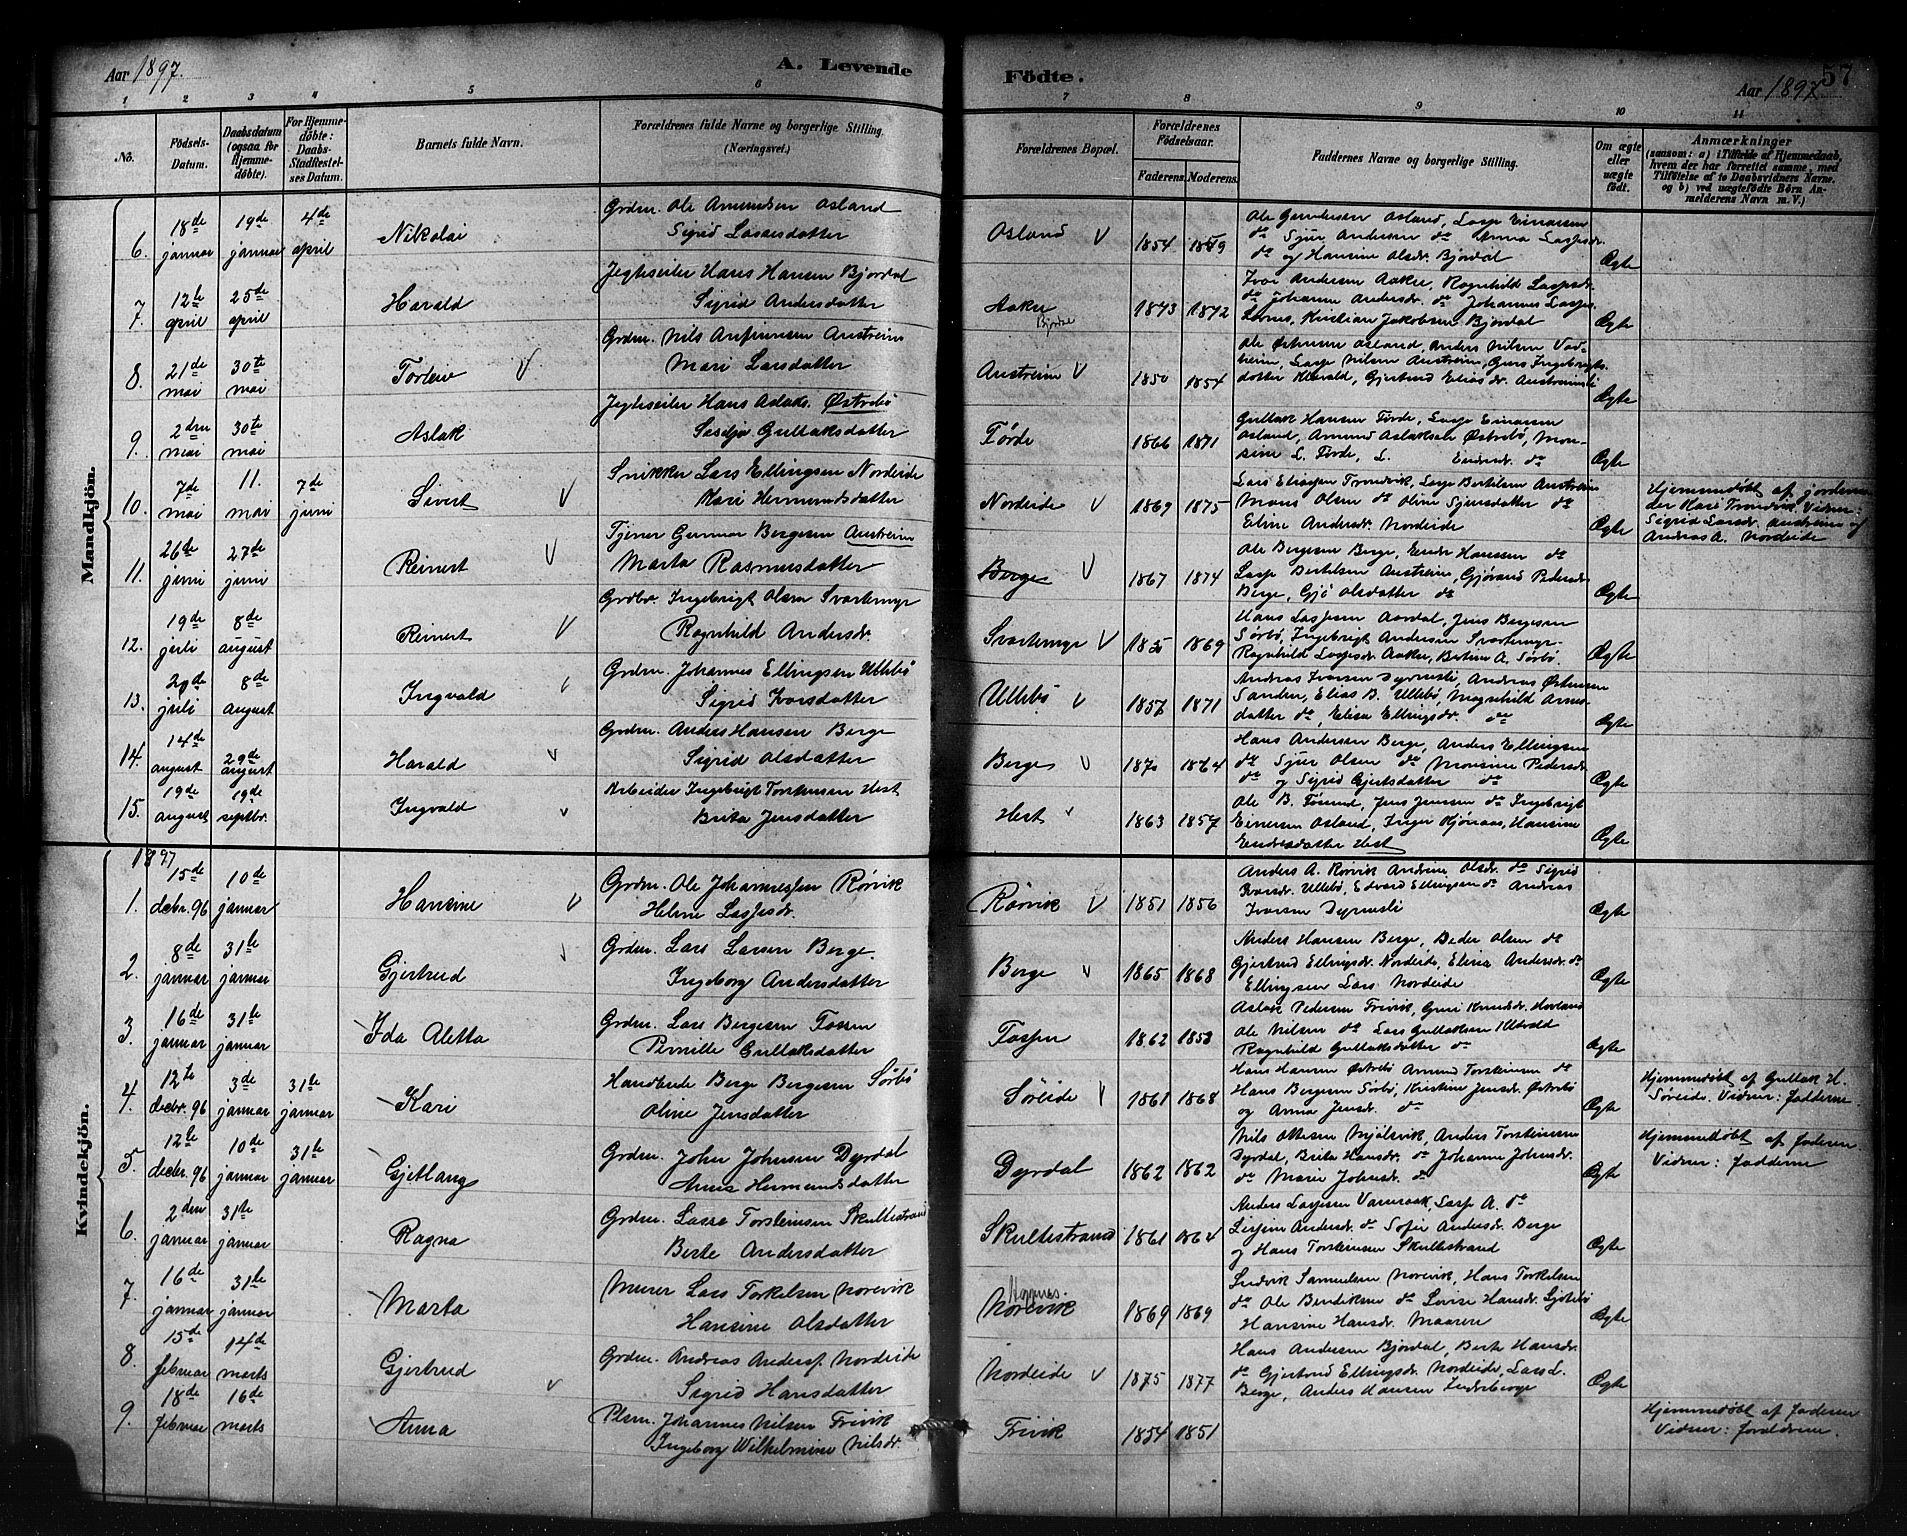 Aar 1897.
A. Levende
Födte.
Aar 1897
57
1 2 3 4 5 6 7 8 9 10 11
No.
Födsels-Datum.
Daabsdatum (ogsaa for Hjemmedöbte).
For Hjemmedöbte: Daabs-Stadfestelses Datum.
Barnets fulde Navn.
Forældrenes fulde Navne og borgerlige Stilling. (Næringsvei.)
Forældrenes Bopæl.
Forældrenes Födselsaar.
Faderens. Moderens.
Faddernes Navne og borgerlige Stilling.
Om ægte eller uægte födt.
Anmærkninger
(saasom: a) i Tilfælde af Hjemmedaab, hvem der har forrettet samme, med Tilföielse af to Daabsvidners Navne. og b) ved uægtefödte Börn Anmelderens Navn m. V.)
Mandkjön.
6. 18de januar 19de januar 4de april Nikolai Grdm. Ole Amundsen Osland
Sigrid Lassesdatter Osland 1854 1859 Ole Gundersen Osland, Lasse Einarsen
do Sjur Andersen do Anna Lassesdr.
do og Hansine Olsdr. Bjordal Ægte
7. 12te april 25de april Harald Jegteseiler Hans Hansen Bjordal
Sigrid Andersdatter Aaker Bjordal 1843 1872 Ivar Andersen Aaker, Ragnhild Lassesdr.
do Johanne Andersdr. do Johannes Lasses.
Kristian Jakobsen Bjordal Ægte
8. 21de mai 30te mai Torleiv Grdm. Nils Arnfinnsen Austreim
Mari Larsdatter Austreim 1850 1854 Ole Østensen Osland, Anders Nilsen Vad-
heim, Lasse Nilsen Austreim, Guri Ingebrigts-
datter Kleivald, Gjertrud Eliasdr. Austreimsli Ægte
9. 2den mai 30te mai Aslak Jegteseiler Hans Aslaks. Østrebö
Gullaksdatter Förde 1866 1871 Gullak Hansen Förde, Lasse Einarsen
Osland, Amund Aslaksen Østrebö, Mon-
sine L. Förde, L. Endresdr. do Ægte
10. 7de mai 11. mai 7de juni Sivert Snikker Lars Ellingsen Nordeide
Kari Hermundsdatter Nordeide 1869 1875 Lars Eliasen Trondvik, Lasse Bertilsen Austreim
Mons Olsen do Oline Sjursdatter do
Eline Andersdr. Nordeide Ægte Hjemmedöbt af jordemo-
der Kari Trondvik. Vidner:
Sigrid Larsdr. Austreim og
Andreas A. Nordeide
11. 26te juni 27de juni Reinert Tjener Gunnar Bergesen Austreim
Marta Rasmusdatter Berge 1867 1874 Ole Bergesen Berge, Endre Hanssen do
Lasse Bertelsen Austreim, Gjörand Pedersdr.
Berge, Gjö Olsdatter do Ægte
12. 19de juli 8de august Reinert Grdbr. Ingebrigt Olsen Svartemyr
Ragnhild Andersdr. Svartemyr 1869 Hans Lassesen Aardal, Jens Bergesen
Sörbö, Ingebrigt Andersen Svartemyr
Ragnhild Lassesdr. Aaker, Bertine A. Sörbö. Ægte
13. 29de juli 8de august Ingvald Grdm. Johannes Ellingsen Ullebö
Sigrid Ivarsdatter Ullebö 1857 1871 Andreas Ivarsen Dyrnesli, Andreas Østensen
Sanden, Elias B. Ullebö, Magnhild Arnes-
datter do, Elisa Ellingsdr. do Ægte
14. 14de august 29de august Harald Grdm. Anders Hansen Berge
Sigrid Olsdatter Berge 1870 1864 Hans Andersen Berge, Anders Ellingsen
do Sjur Olsen do Monsine Pedersdr.
do og Sigrid Gjertsdatter do Ægte
15. 19de august 19de septbr. Ingvald Arbeider Ingebrigt Torstensen Hest
Brita Jensdatter Hest 1863 1857 Ole B. Jens Jensen do Ingebrigt
Einersen Osland, Inger Hansine
Endresdatter Hest Ægte
Kvindekjön.
1897
1. 15de decbr. 96 10de januar Hansine Grdm. Ole Johannessen Rörvik
Heline Lassesdr. Rörvik 1851 1856 Anders A. Rörvik Andrine Olsdr. do Sigrid
Ivarsdr. Ullebö, Edvard Ellingsen do Andreas
Ivarsen Dyrnesli Ægte
2. 8de januar 31te januar Gjertrud Grdm. Lars Larsen Berge.
Ingeborg Andersdatter Berge 1865 1868 Anders Hansen Berge, Peder Olsen do
Gjertrud Ellingsdr. Nordeide, Andersdr. do
Ellingsen Lars Nordeide Ægte
3. 16de januar 31te januar Ida Aletta Grdm. Lars Bergesen Fossen
Pernille Gullaksdatter Fossen 1862 1853 Aslak Pedersen Frivik, Guri Knudsdr. Hovland
Ole Nilsen do Lars Gullaksen
Ragnhild Gullaksdatter do Ægte
4. 12te decbr. 96 3de januar 31te januar Kari Handlende Berge Bergesen Sörbö
Oline Jensdatter Söreide 1861 1868 Hans Hansen Østrebö Amund Torsteinsen do
Hans Bergesen Sörbö, Kristine Jensdr. Østrebö
og Anna Jensdr. do Ægte Hjemmedöbt af Gullak H.
Söreide. Vidner: Fadderne.
5. 12te decbr. 96 10de januar 31te januar Gjetlaug Grdm. John Johnsen Dyrdal
Anna Hermundsdatter Dyrdal 1862 1862 Nils Ottesen Mjölsvik, Anders Torsteinsen
Dyrdal, Brita Hansdr. do Johanne Johnsdr.
do Marie Johnsdr. do Ægte Hjemmedöbt af Faderen.
Vidner: Fadderne
6. 2den januar 31te januar Ragna Grdm. Lasse Torsteinsen Skultestrand
Berte Andersdatter Skultestrand 1861 1864 Anders Lassesen Vameraak, Lasse A. do
Andersdr. do Sofie Andersdr. Berge
og Hans Torsteinsen Skultestrand Ægte
7. 16de januar 31te januar Marta Murer Lars Torkelsen Norevik
Hansine Olsdatter Norevik 1869 1869 Ludvik Samuelsen Norevik, Hans Torkelsen
do Ole Bendiksen do Lovise Hansdr.
Hansine Hansdr. Maaren Ægte
8. 15de februar 14de marts Gjertrud Grdm. Andreas Anders. Nordeide
Sigrid Hansdatter Nordeide 1875 1877 Hans Andersen Bjordal, Berte Hansdr.
do Gjertrud Ellingsdr. Nordeide, Lars L.
Berge, Anders Hansen Inderberge Ægte
9. 18de februar 16de marts Anna Plsm. Johannes Nilsen Frivik
Ingeborg Wilhelmine Nilsdr. Frivik 1854 1851 Hjemmedöbt af Faderen
Vidner: Foreldrene.